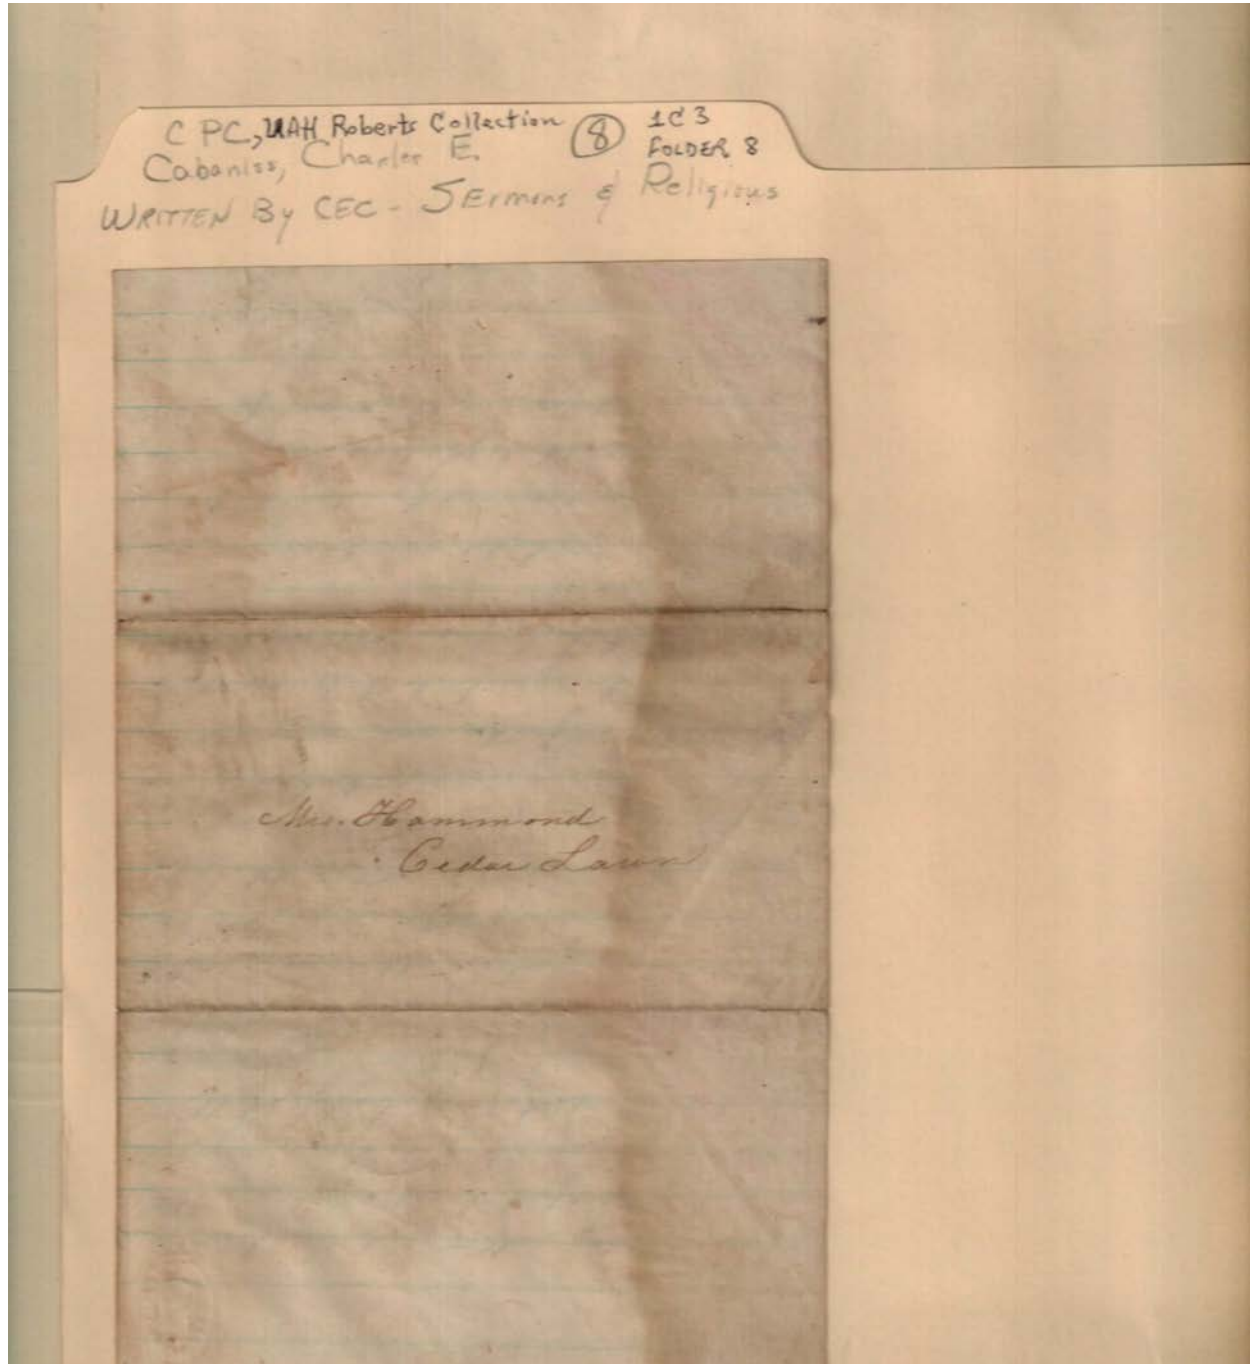 C PC, UAH Roberts Collection 8 1C3
Cabaniss, Charles E. FOLDER 8
WRITTEN By CEC - SErmons & Religious
Mrs. Hammond
Cedar Lawn